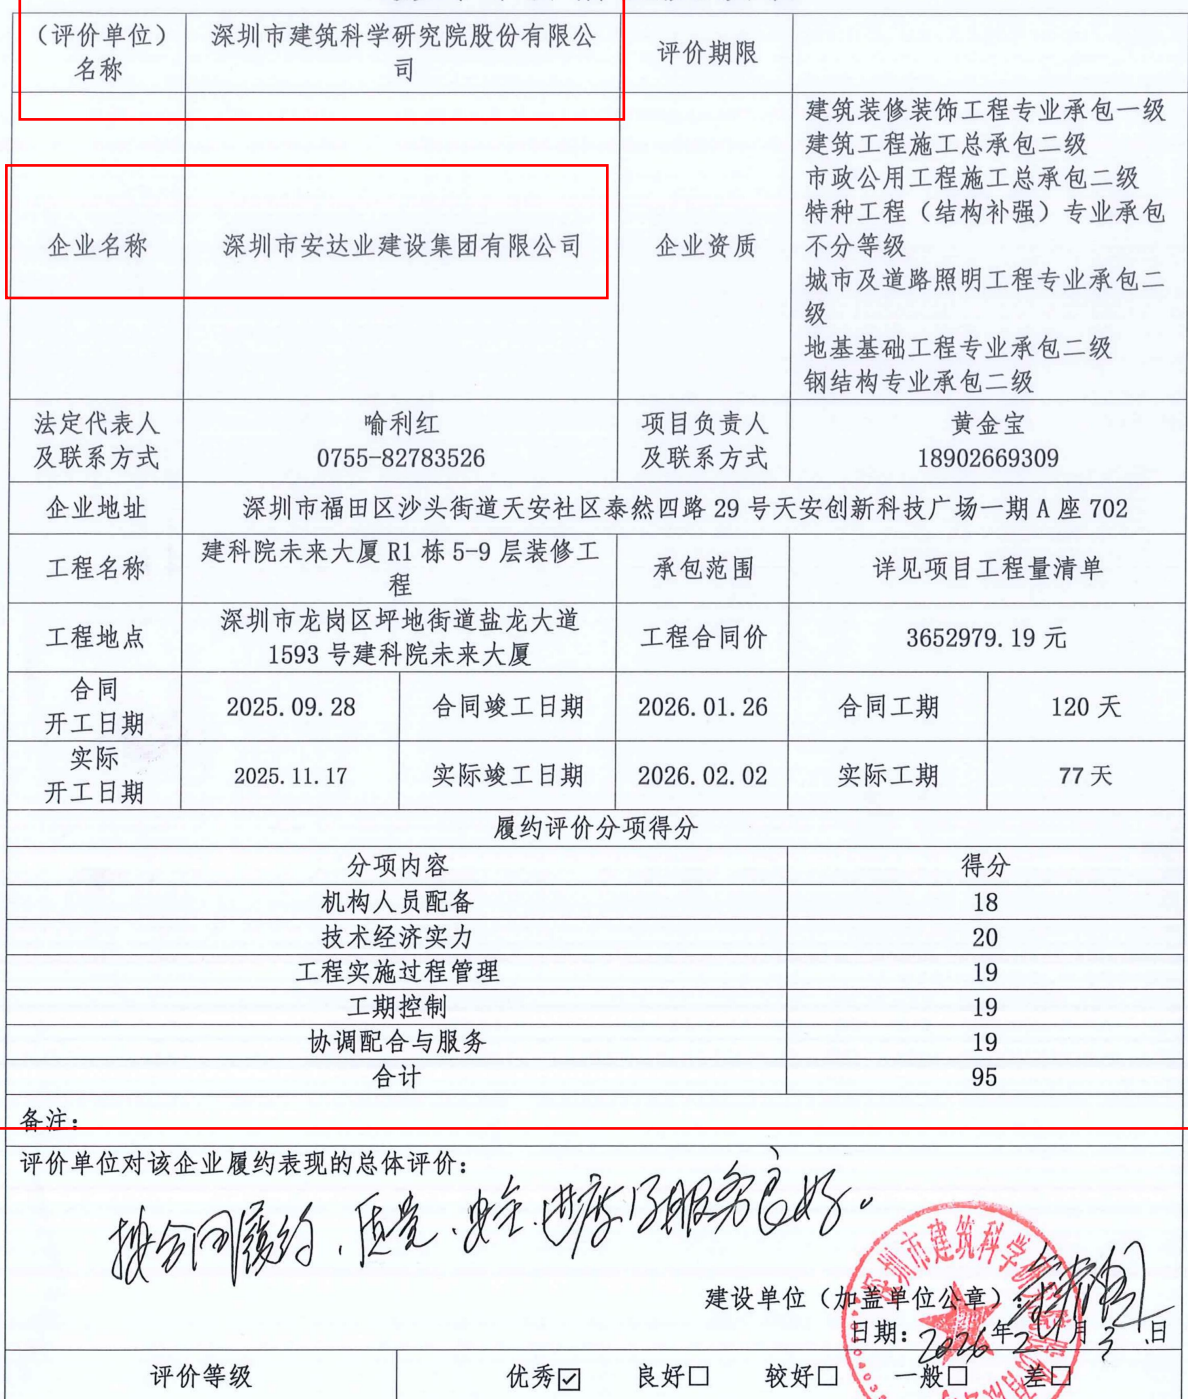 （评价单位）
名称
深圳市建筑科学研究院股份有限公
司
评价期限
企业名称
深圳市安达业建设集团有限公司
企业资质
建筑装修装饰工程专业承包一级
建筑工程施工总承包二级
市政公用工程施工总承包二级
特种工程（结构补强）专业承包
不分等级
城市及道路照明工程专业承包二
级
地基基础工程专业承包二级
钢结构专业承包二级
法定代表人
及联系方式
喻利红
0755-82783526
项目负责人
及联系方式
黄金宝
18902669309
企业地址
深圳市福田区沙头街道天安社区泰然四路 29 号天安创新科技广场一期 A 座 702
工程名称
建科院未来大厦 R1 栋 5-9 层装修工
程
承包范围
详见项目工程量清单
工程地点
深圳市龙岗区坪地街道盐龙大道
1593 号建科院未来大厦
工程合同价
3652979.19 元
合同
开工日期
2025.09.28
合同竣工日期
2026.01.26
合同工期
120 天
实际
开工日期
2025.11.17
实际竣工日期
2026.02.02
实际工期
77 天
履约评价分项得分
分项内容
得分
机构人员配备
18
技术经济实力
20
工程实施过程管理
19
工期控制
19
协调配合与服务
19
合计
95
备注：
评价单位对该企业履约表现的总体评价：
按合同履约，质量、安全、进度及服务良好。
深圳市建筑科学研究院股份有限
建设单位（加盖单位公章）：
日期：2026年2月3日
评价等级
优秀☑
良好□
较好□
一般□
差□